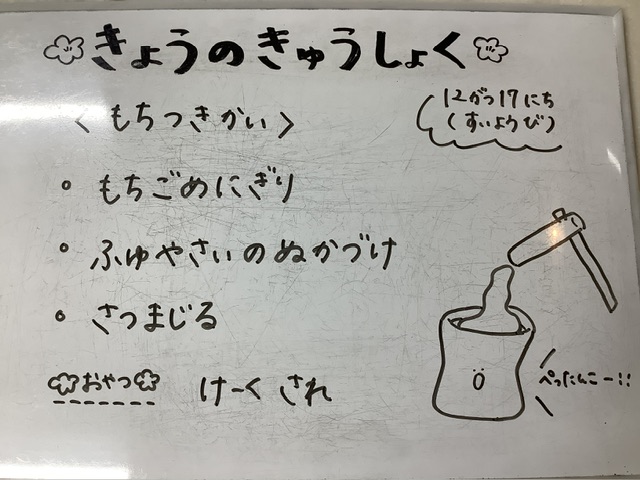 きょうのきゅうしょく
12がつ17にち
(すいようび)
〈もちつきかい〉
。もちごめにぎり
。ふゆやさいのぬかづけ
。さつまじる
おやつ けーくされ
ぺったんこー!!